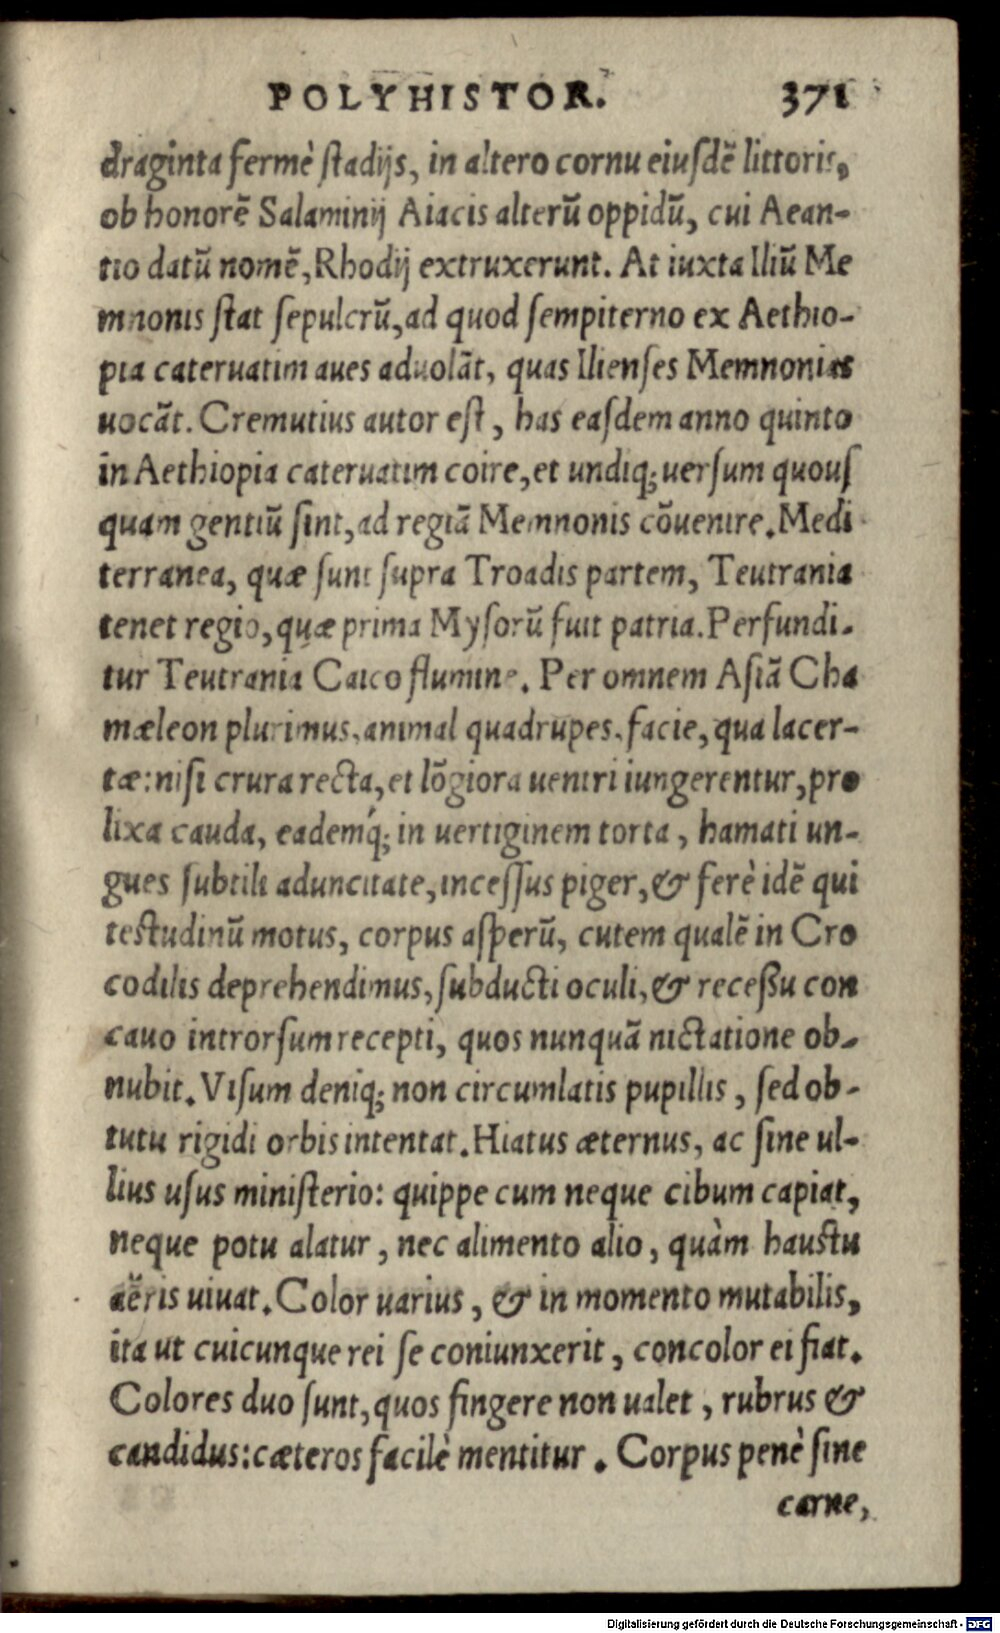 POLYHISTOR. 371
draginta fermè ſtadijs, in altero cornu eiuſdē littoris,
ob honorē Salaminij Aiacis alterū oppidū, cui Aean-
tio datū nomē, Rhodij extruxerunt. At iuxta Iliū Me
mnonis ſtat ſepulcrū, ad quod ſempiterno ex Aethio-
pia cateruatim aues aduolāt, quas Ilienſes Memnonias
uocāt. Cremutius autor eſt, has eaſdem anno quinto
in Aethiopia cateruatim coire, et undiq; uerſum quouſ
quam gentiū ſint, ad regiā Memnonis cōuenire. Medi
terranea, quæ ſunt ſupra Troadis partem, Teutrania
tenet regio, quæ prima Myſorū fuit patria. Perfundi-
tur Teutrania Caico flumine. Per omnem Aſiā Cha
mæleon plurimus, animal quadrupes, facie, qua lacer-
tæ: niſi crura recta, et lōgiora uentri iungerentur, pro
lixa cauda, eademq́; in uertiginem torta, hamati un-
gues ſubtili aduncitate, inceſſus piger, & ferè idē qui
teſtudinū motus, corpus aſperū, cutem qualē in Cro
codilis deprehendimus, ſubducti oculi, & receßu con
cauo introrſum recepti, quos nunquā nictatione ob-
nubit. Viſum deniq; non circumlatis pupillis, ſed ob-
tutu rigidi orbis intentat. Hiatus æternus, ac ſine ul-
lius uſus miniſterio: quippe cum neque cibum capiat,
neque potu alatur, nec alimento alio, quàm hauſtu
aëris uiuat. Color uarius, & in momento mutabilis,
ita ut cuicunque rei ſe coniunxerit, concolor ei fiat.
Colores duo ſunt, quos fingere non ualet, rubrus &
candidus: cæteros facilè mentitur. Corpus penè ſine
carne,
Digitalisierung gefördert durch die Deutsche Forschungsgemeinschaft - DFG